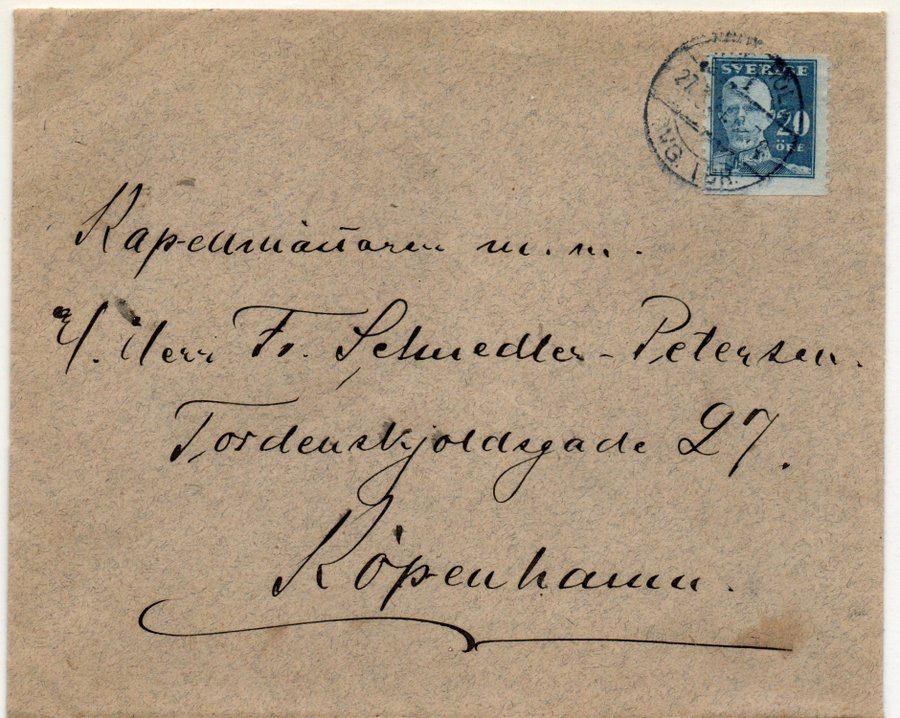 SVERIGE
20
ÖRE
27.
Kapellmästaren m. m.
Herr Fr. Schnedler-Petersen.
Tordenskjoldsgade 27.
Köpenhamn.